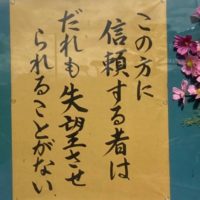 この方に
信頼する者は
だれも失望させ
られることがない